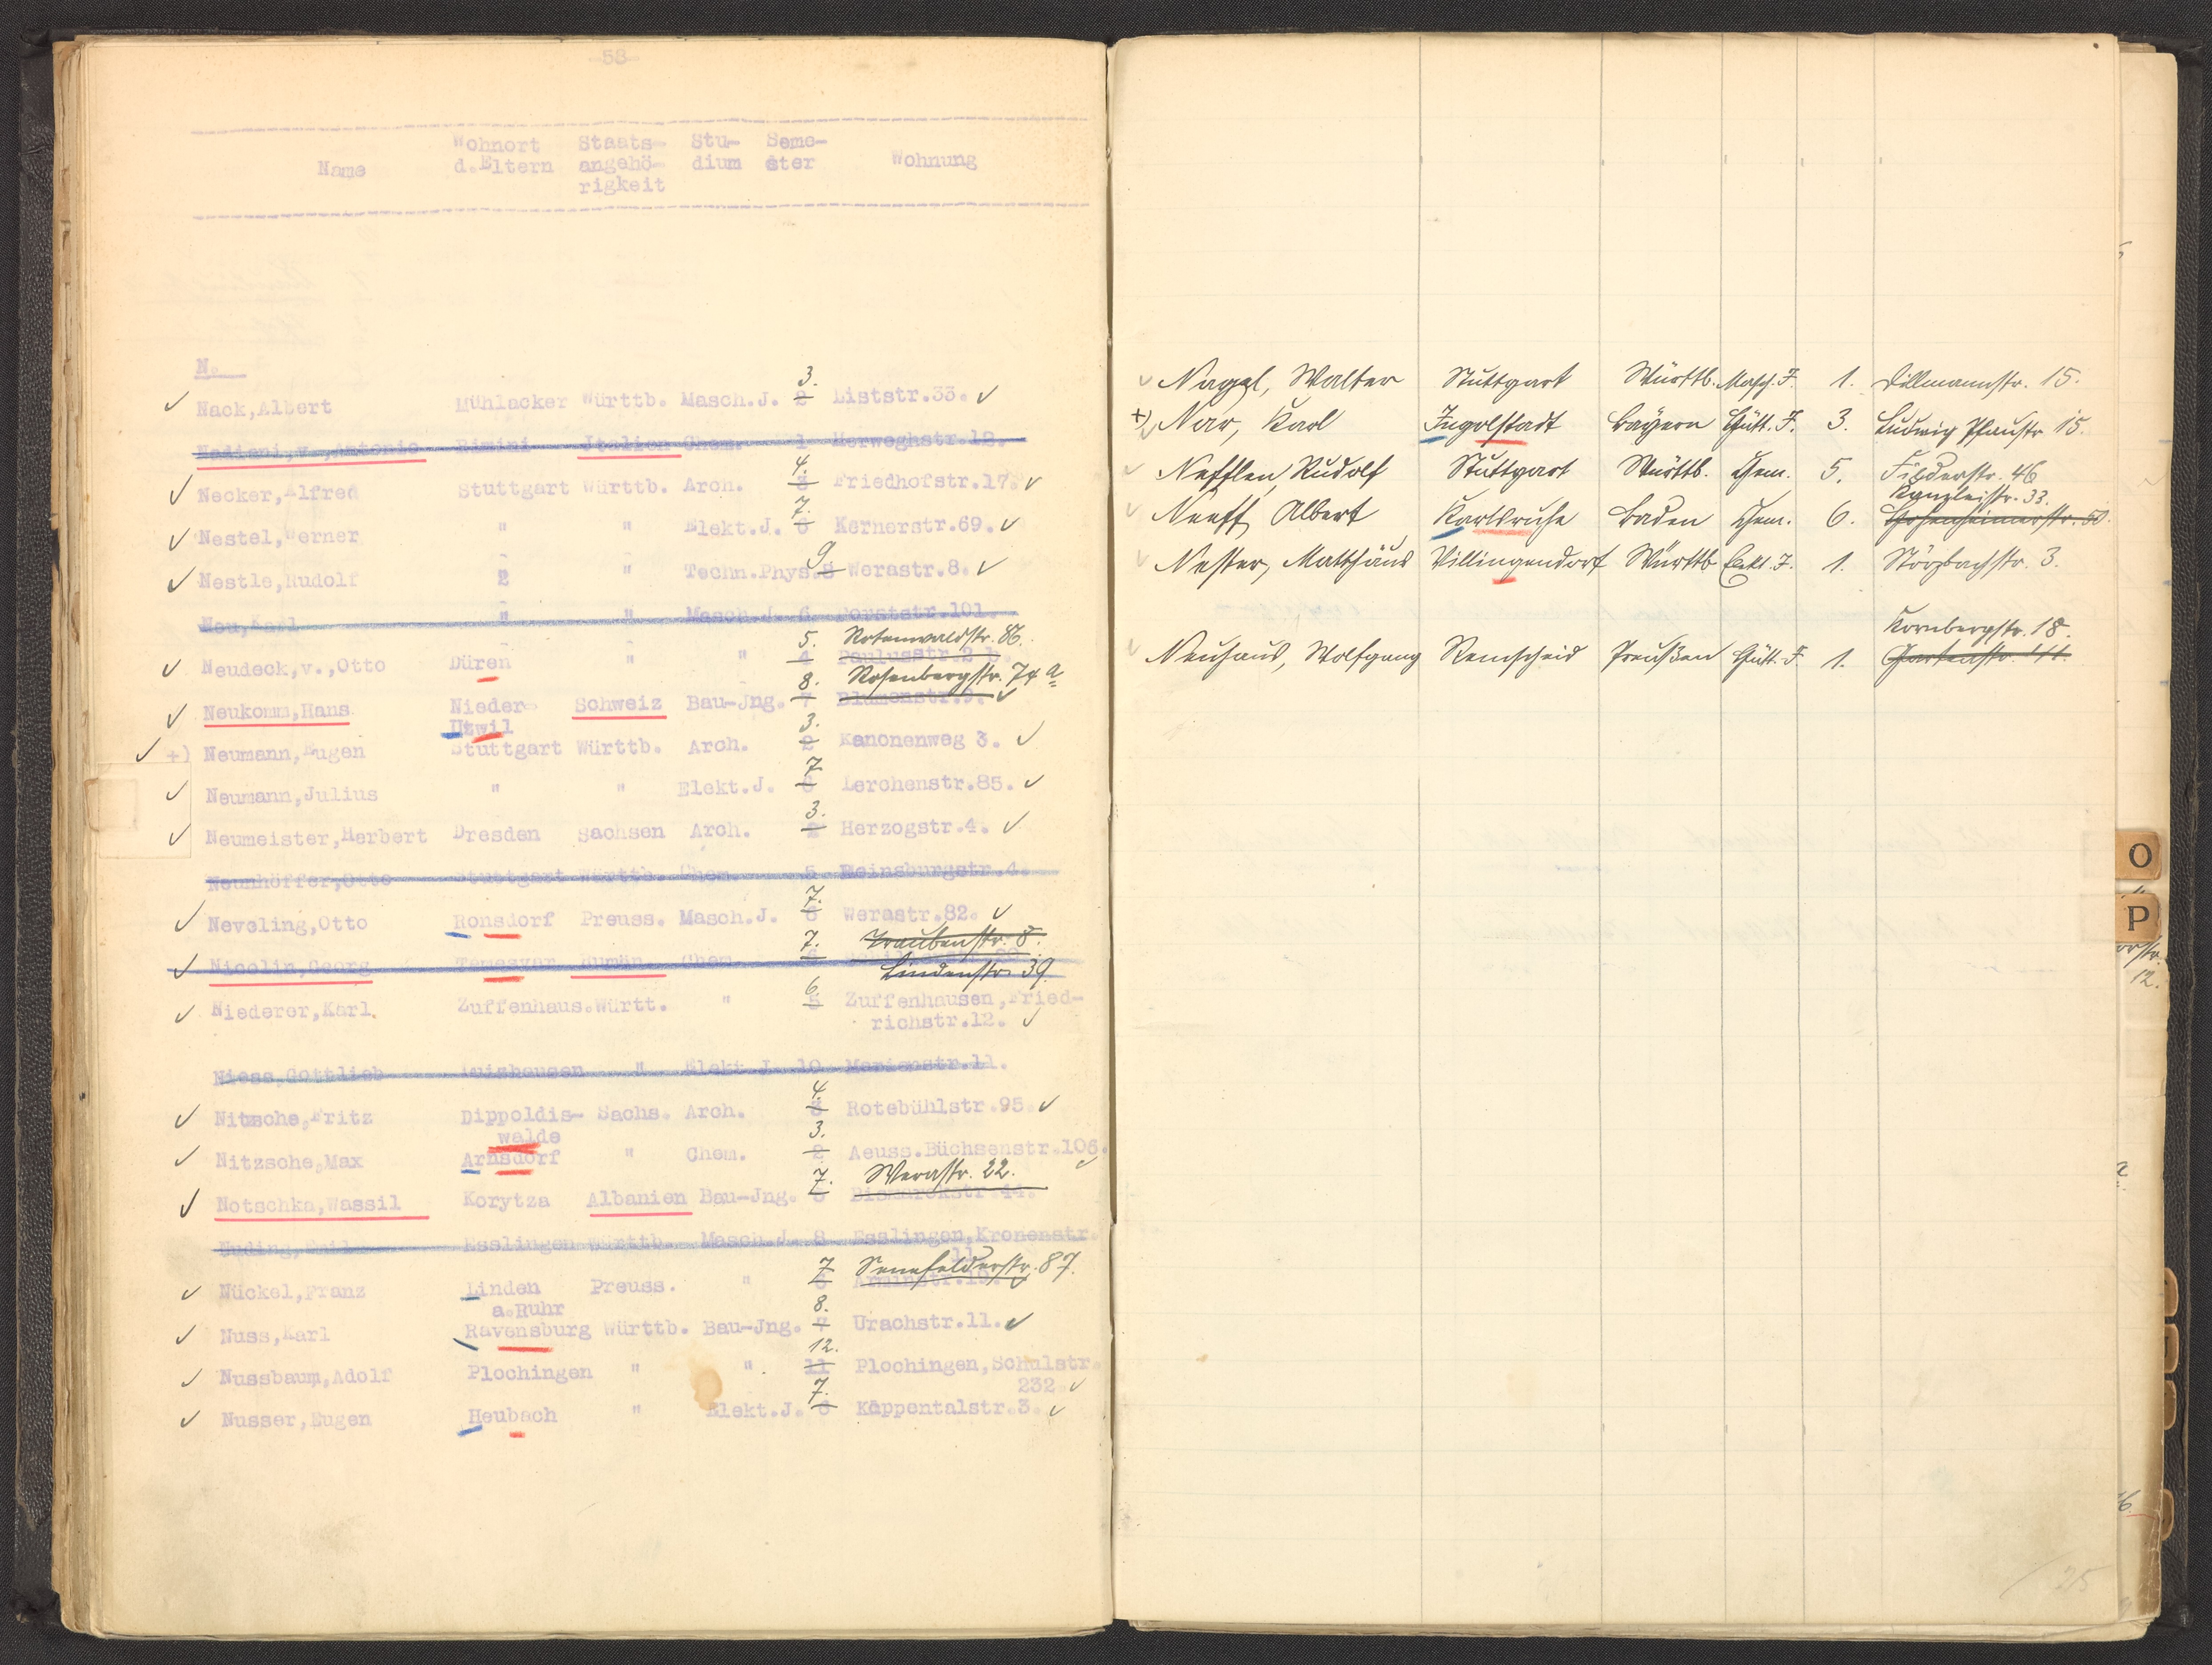 -58-
Name Wohnort d.Eltern Staats-angehö-rigkeit Stu-dium Seme-ster Wohnung
N.
Nack,Albert Mühlacker Württb. Masch.J. 2 3. Liststr.33.
Nadiani,v.,Antonio Rimini Italien Chem. 1 Herweghstr.12.
Necker,Alfred Stuttgart Württb. Arch. 3 4. Friedhofstr.17.
Nestel,Werner " " Elekt.J. 6 7. Kernerstr.69.
Nestle,Rudolf " " Techn.Phys. 8 9 Werastr.8.
Neu,Karl " " Masch.J. 6 Forststr.101.
Neudeck,v.,Otto Düren " " 4 5. Paulusstr.2 b. Rotenwaldstr. 86.
Neukomm,Hans Nieder-Utzwil Schweiz Bau-Jng. 7 8. Blumenstr.9. Rosenbergstr. 74 a
+) Neumann,Eugen Stuttgart Württb. Arch. 2 3. Kanonenweg 3.
Neumann,Julius " " Elekt.J. 6 7 Lerchenstr.85.
Neumeister,Herbert Dresden Sachsen Arch. 2 3. Herzogstr.4.
Neunhöffer,Otto Stuttgart Württb. Chem. 5 Reinsburgstr.4.
Neveling,Otto Ronsdorf Preuss. Masch.J. 6 7. Werastr.82.
Nicolin,Georg Temesvar Rumän. Chem. 7. Traubenstr. 8. Lindenstr. 39.
Niederer,Karl Zuffenhaus.Württ. " 5 6. Zuffenhausen,Fried-
richstr.12.
Niess,Gottlieb " Elekt.J. 10 Marienstr.11.
Nitzsche,Fritz Dippoldis-walde Sachs. Arch. 3 4. Rotebühlstr.95.
Nitzsche,Max Arnsdorf " Chem. 2 3. Aeuss.Büchsenstr.106.
Notschka,Wassil Korytza Albanien Bau-Jng. 7. Bismarckstr.44. Werastr. 22.
Nuding,Emil Esslingen Württb. Masch.J. 8 Esslingen,Kronenstr.
11.
Nückel,Franz Linden a.Ruhr Preuss. " 6 7 Senefelderstr. 87.
Nuss,Karl Ravensburg Württb. Bau-Jng. 7 8. Urachstr.11.
Nussbaum,Adolf Plochingen " " 11 12. Plochingen,Schulstr.
232
Nusser,Eugen Heubach " Elekt.J. 6 7. Käppentalstr.3.
Nagel, Walter Stuttgart Württb. Masch. J. 1. Dillmannstr. 15.
+) Nar, Karl Ingolstadt Bayern Hütt. J. 3. Ludwig Pfaustr 15.
Nefflen, Rudolf Stuttgart Württb. Chem. 5. Filderstr. 46
Neeff, Albert Karlsruhe Baden Chem. 6. Hohenheimerstr. 50. Kanzleistr. 33.
Nester, Matthäus Villingendorf Württb Elekt. J. 1. Störzbachstr. 3.
Neuhaus, Wolfgang Remscheid Preußen Hütt. J. 1. Gartenstr. Kornbergstr. 18.
O
P
12.
25